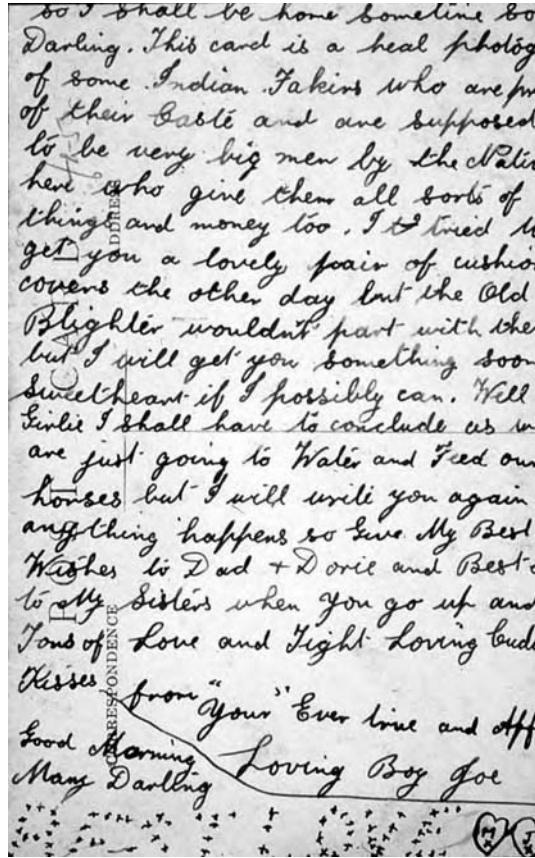 so I shall be home sometime so
Darling. This card is a heal photog
of some Indian Fakirs who are pr
of their Caste and are supposed
to be very big men by the Nati
here who give them all sorts of
things and money too. I tried to
get you a lovely pair of cushio
covers the other day but the Old
Blighter wouldn't part with the
but I will get you something soon
Sweetheart if I possibly can. Well
Girlie I shall have to conclude as w
are just going to Water and Feed our
horses but I will write you again
anything happens so Give My Best
Wishes to Dad + Dorie and Best
to My Sisters when You go up and
Tons of Love and Tight Loving Cud
Kisses from "Your" Ever true and Aff
Good Morning Loving Boy Joe
Many Darling
M J
POST CARD
CORRESPONDENCE
ADDRESS